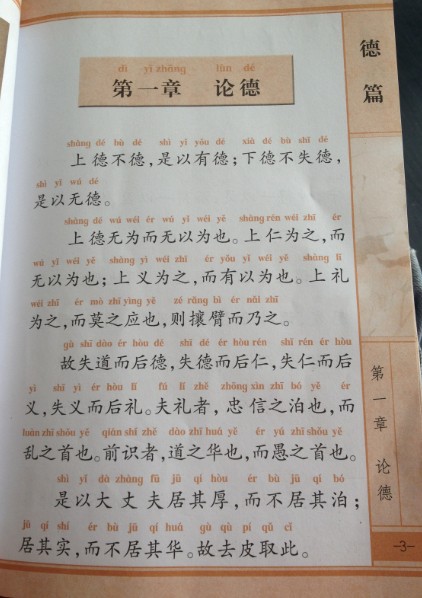 dì yī zhāng lùn dé
第一章 论德
shàng dé bù dé shì yǐ yǒu dé xià dé bù shī dé
上德不德，是以有德；下德不失德，
shì yǐ wú dé
是以无德。
shàng dé wú wéi ér wú yǐ wéi yě shàng rén wéi zhī ér
上德无为而无以为也。上仁为之，而
wú yǐ wéi yě shàng yì wéi zhī ér yǒu yǐ wéi yě shàng lǐ
无以为也；上义为之，而有以为也。上礼
wéi zhī ér mò zhī yìng yě zé rǎng bì ér nǎi zhī
为之，而莫之应也，则攘臂而乃之。
gù shī dào ér hòu dé shī dé ér hòu rén shī rén ér hòu
故失道而后德，失德而后仁，失仁而后
yì shī yì ér hòu lǐ fú lǐ zhě zhōng xìn zhī bó yě ér
义，失义而后礼。夫礼者，忠信之泊也，而
luàn zhī shǒu yě qián shí zhě dào zhī huá yě ér yú zhī shǒu yě
乱之首也。前识者，道之华也，而愚之首也。
shì yǐ dà zhàng fū jū qí hòu ér bù jū qí bó
是以大丈夫居其厚，而不居其泊；
jū qí shí ér bù jū qí huá gù qù pí qǔ cǐ
居其实，而不居其华。故去皮取此。
德篇
第一章 论德
-3-